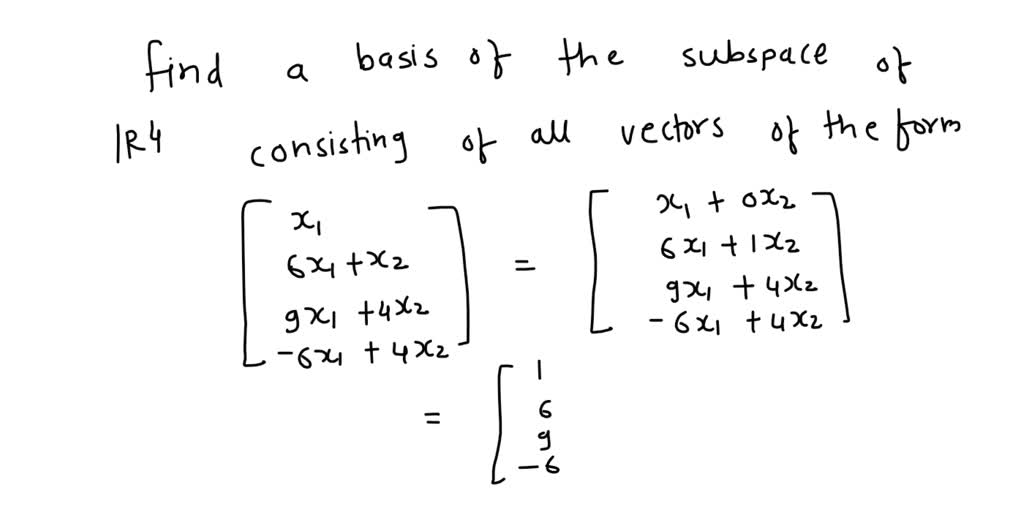 find a basis of the subspace of
IR4 consisting of all vectors of the form
[ x₁ ] = [ x₁ + 0x₂ ]
[ 6x₁ + x₂ ] [ 6x₁ + 1x₂ ]
[ 9x₁ + 4x₂ ] [ 9x₁ + 4x₂ ]
[ -6x₁ + 4x₂ ] [ -6x₁ + 4x₂ ]
= [ 1
6
9
-6